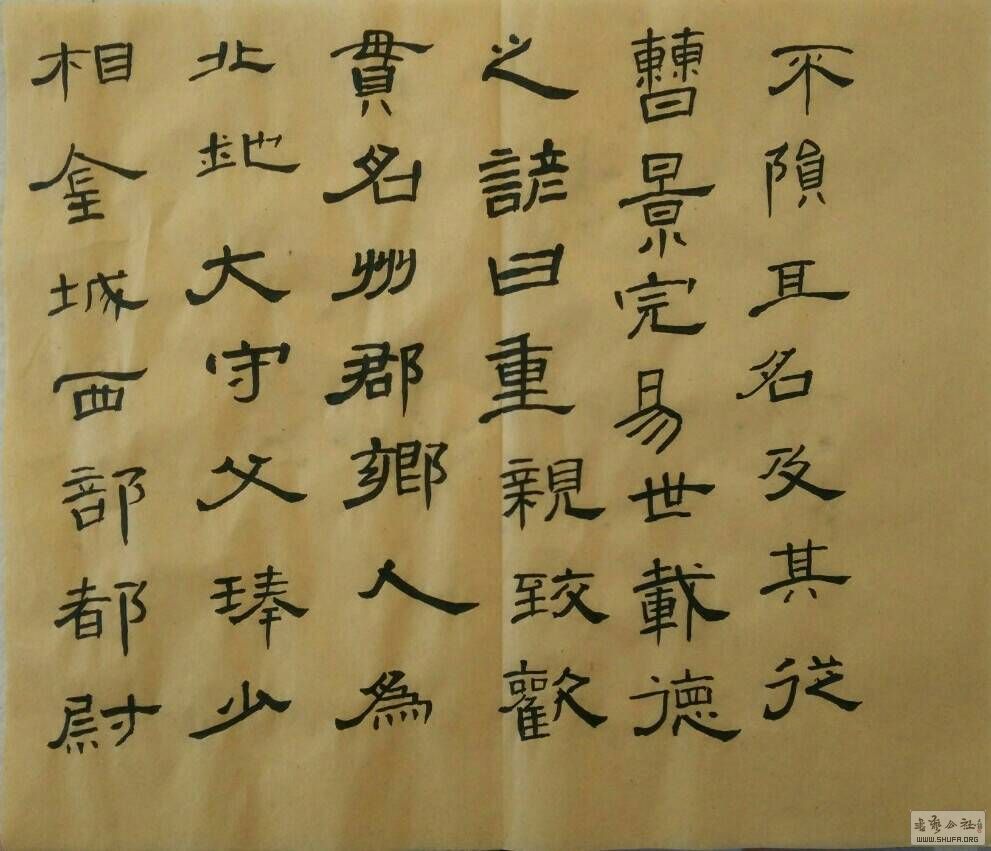 相金城西部都尉
北地大守父琫少
貫名州郡鄉人為
之諺曰重親致歡
曹景完易世載德
不隕且名及其從
书艺公社
WWW.SHUFA.ORG